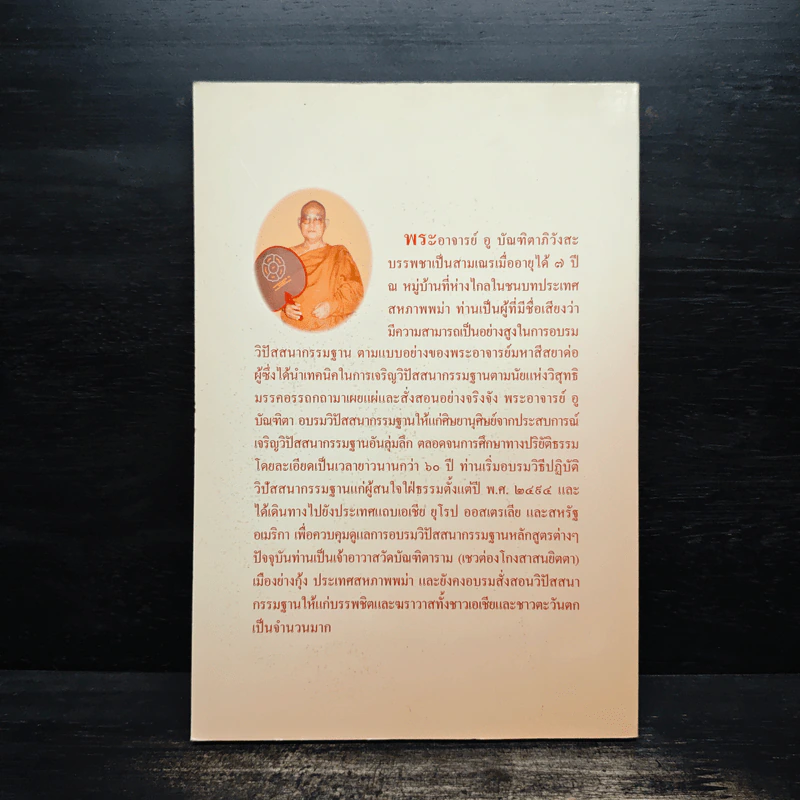 พระอาจารย์ อู บัณฑิตาภิวังสะ
บรรพชาเป็นสามเณรเมื่ออายุได้ ๗ ปี
ณ หมู่บ้านที่ห่างไกลในชนบทประเทศ
สหภาพพม่า ท่านเป็นผู้ที่มีชื่อเสียงว่า
มีความสามารถเป็นอย่างสูงในการอบรม
วิปัสสนากรรมฐาน ตามแบบอย่างของพระอาจารย์มหาสีสยาด่อ
ผู้ซึ่งได้นำเทคนิคในการเจริญวิปัสสนากรรมฐานตามนัยแห่งวิสุทธิ
มรรคอรรถกถามาเผยแผ่และสั่งสอนอย่างจริงจัง พระอาจารย์ อู
บัณฑิตา อบรมวิปัสสนากรรมฐานให้แก่ศิษยานุศิษย์จากประสบการณ์
เจริญวิปัสสนากรรมฐานอันลุ่มลึก ตลอดจนการศึกษาทางปริยัติธรรม
โดยละเอียดเป็นเวลายาวนานกว่า ๖๐ ปี ท่านเริ่มอบรมวิธีปฏิบัติ
วิปัสสนากรรมฐานแก่ผู้สนใจใฝ่ธรรมตั้งแต่ปี พ.ศ. ๒๔๙๔ และ
ได้เดินทางไปยังประเทศแถบเอเชีย ยุโรป ออสเตรเลีย และสหรัฐ
อเมริกา เพื่อควบคุมดูแลการอบรมวิปัสสนากรรมฐานหลักสูตรต่างๆ
ปัจจุบันท่านเป็นเจ้าอาวาสวัดบัณฑิตาราม (เชวต่องโกงสาสนยิตตา)
เมืองย่างกุ้ง ประเทศสหภาพพม่า และยังคงอบรมสั่งสอนวิปัสสนา
กรรมฐานให้แก่บรรพชิตและฆราวาสทั้งชาวเอเชียและชาวตะวันตก
เป็นจำนวนมาก